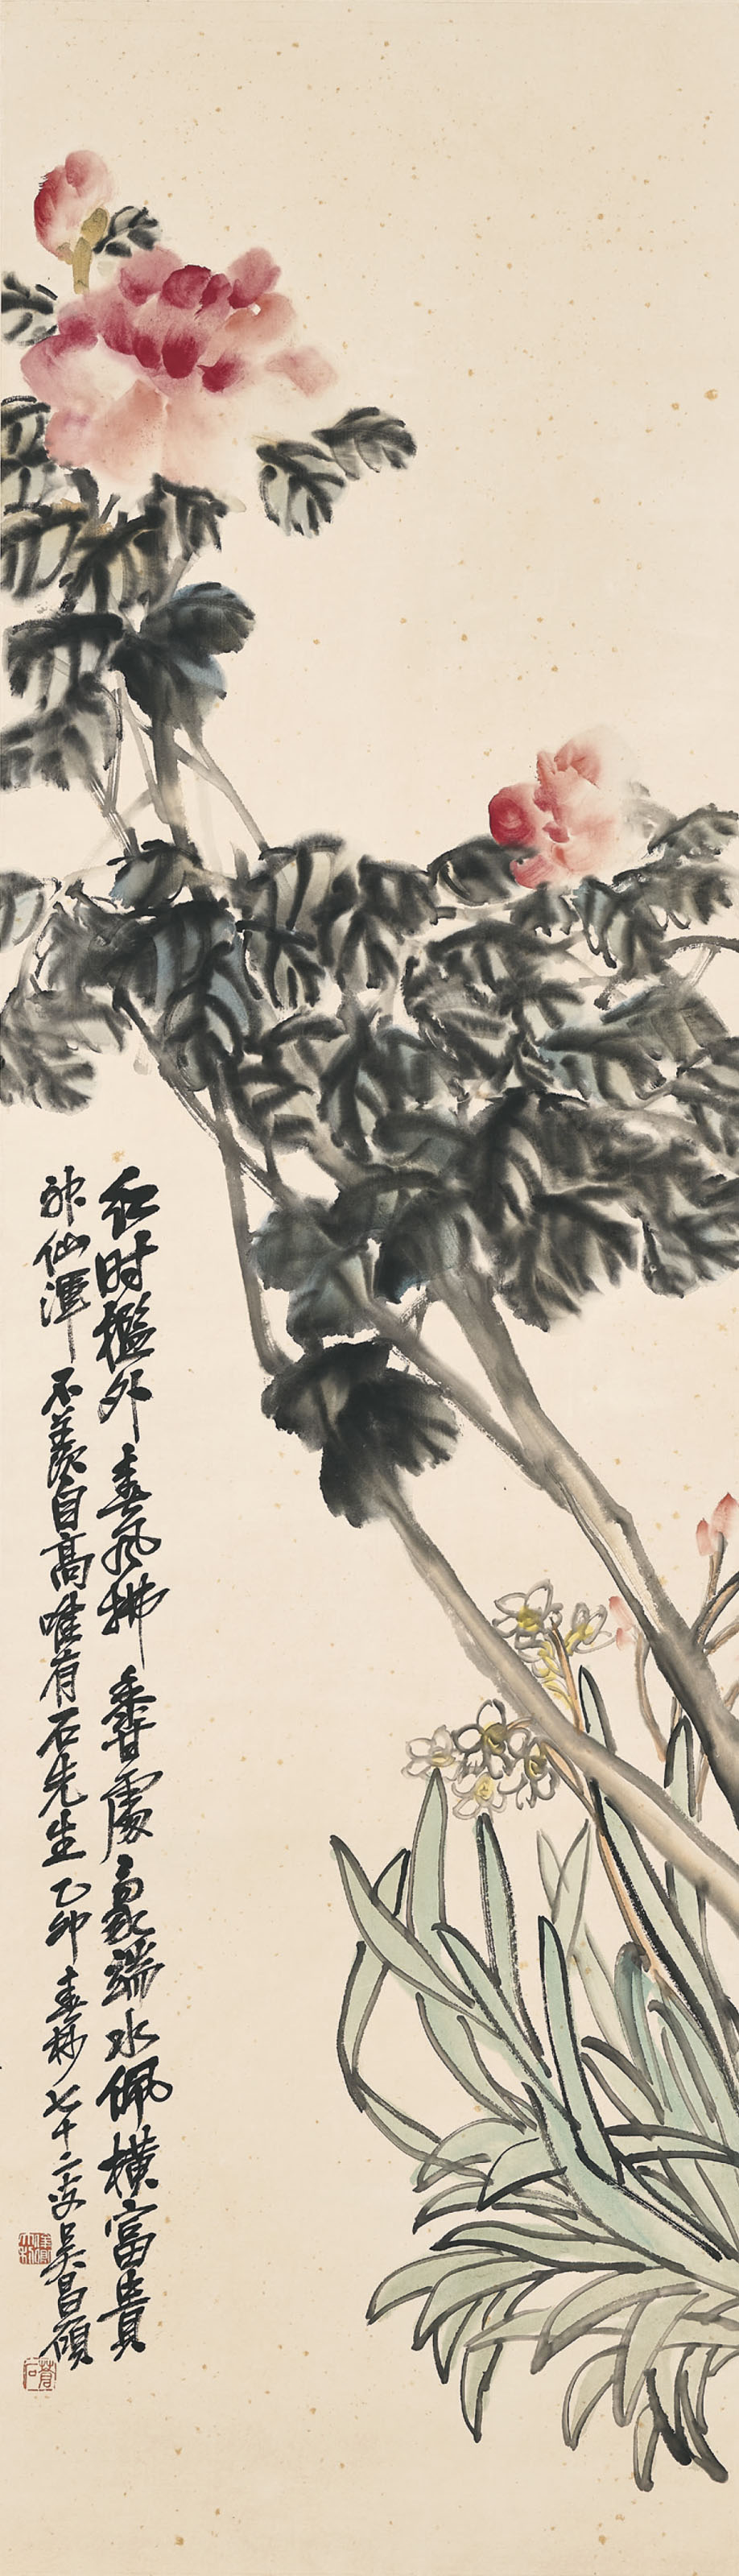 红时槛外春风拂香处豪端水佩横富贵
神仙浑不羡自高唯有石先生乙卯春杪七十二岁吴昌硕